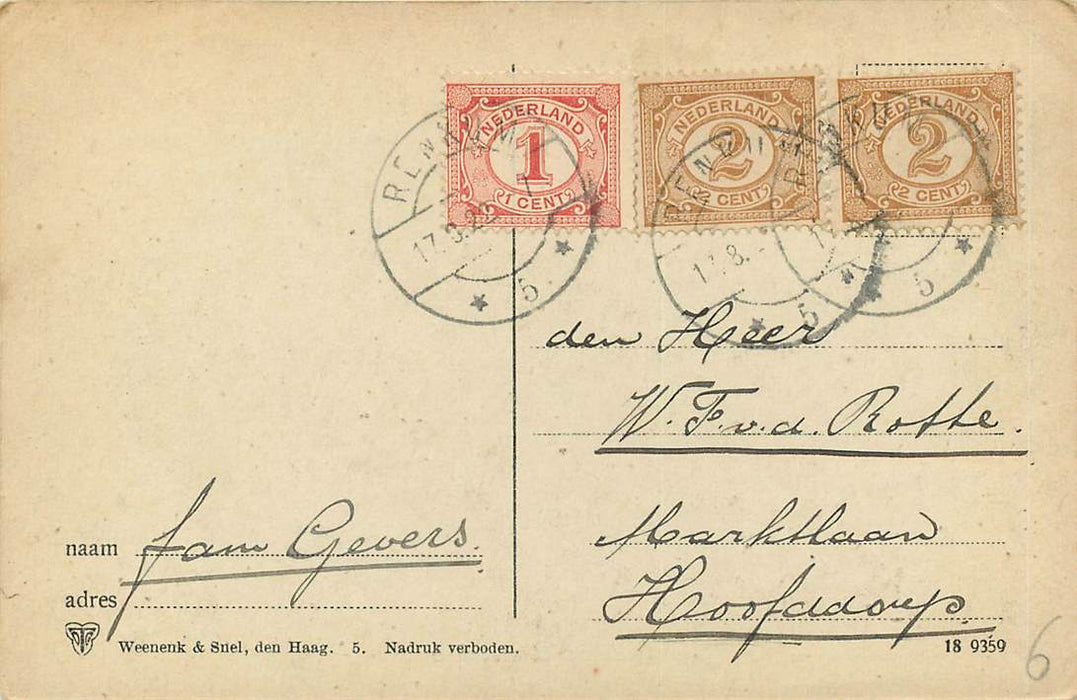 NEDERLAND
1
1 CENT
NEDERLAND
2
2 CENT
NEDERLAND
2
2 CENT
RENKUM
5
RENKUM
5
RENKUM
5
den Heer
W. F. v. d. Rotte.
Marktlaan
Hoofddorp
naam fam Gevers.
adres
Weenenk & Snel, den Haag. 5. Nadruk verboden.
18 9359
6